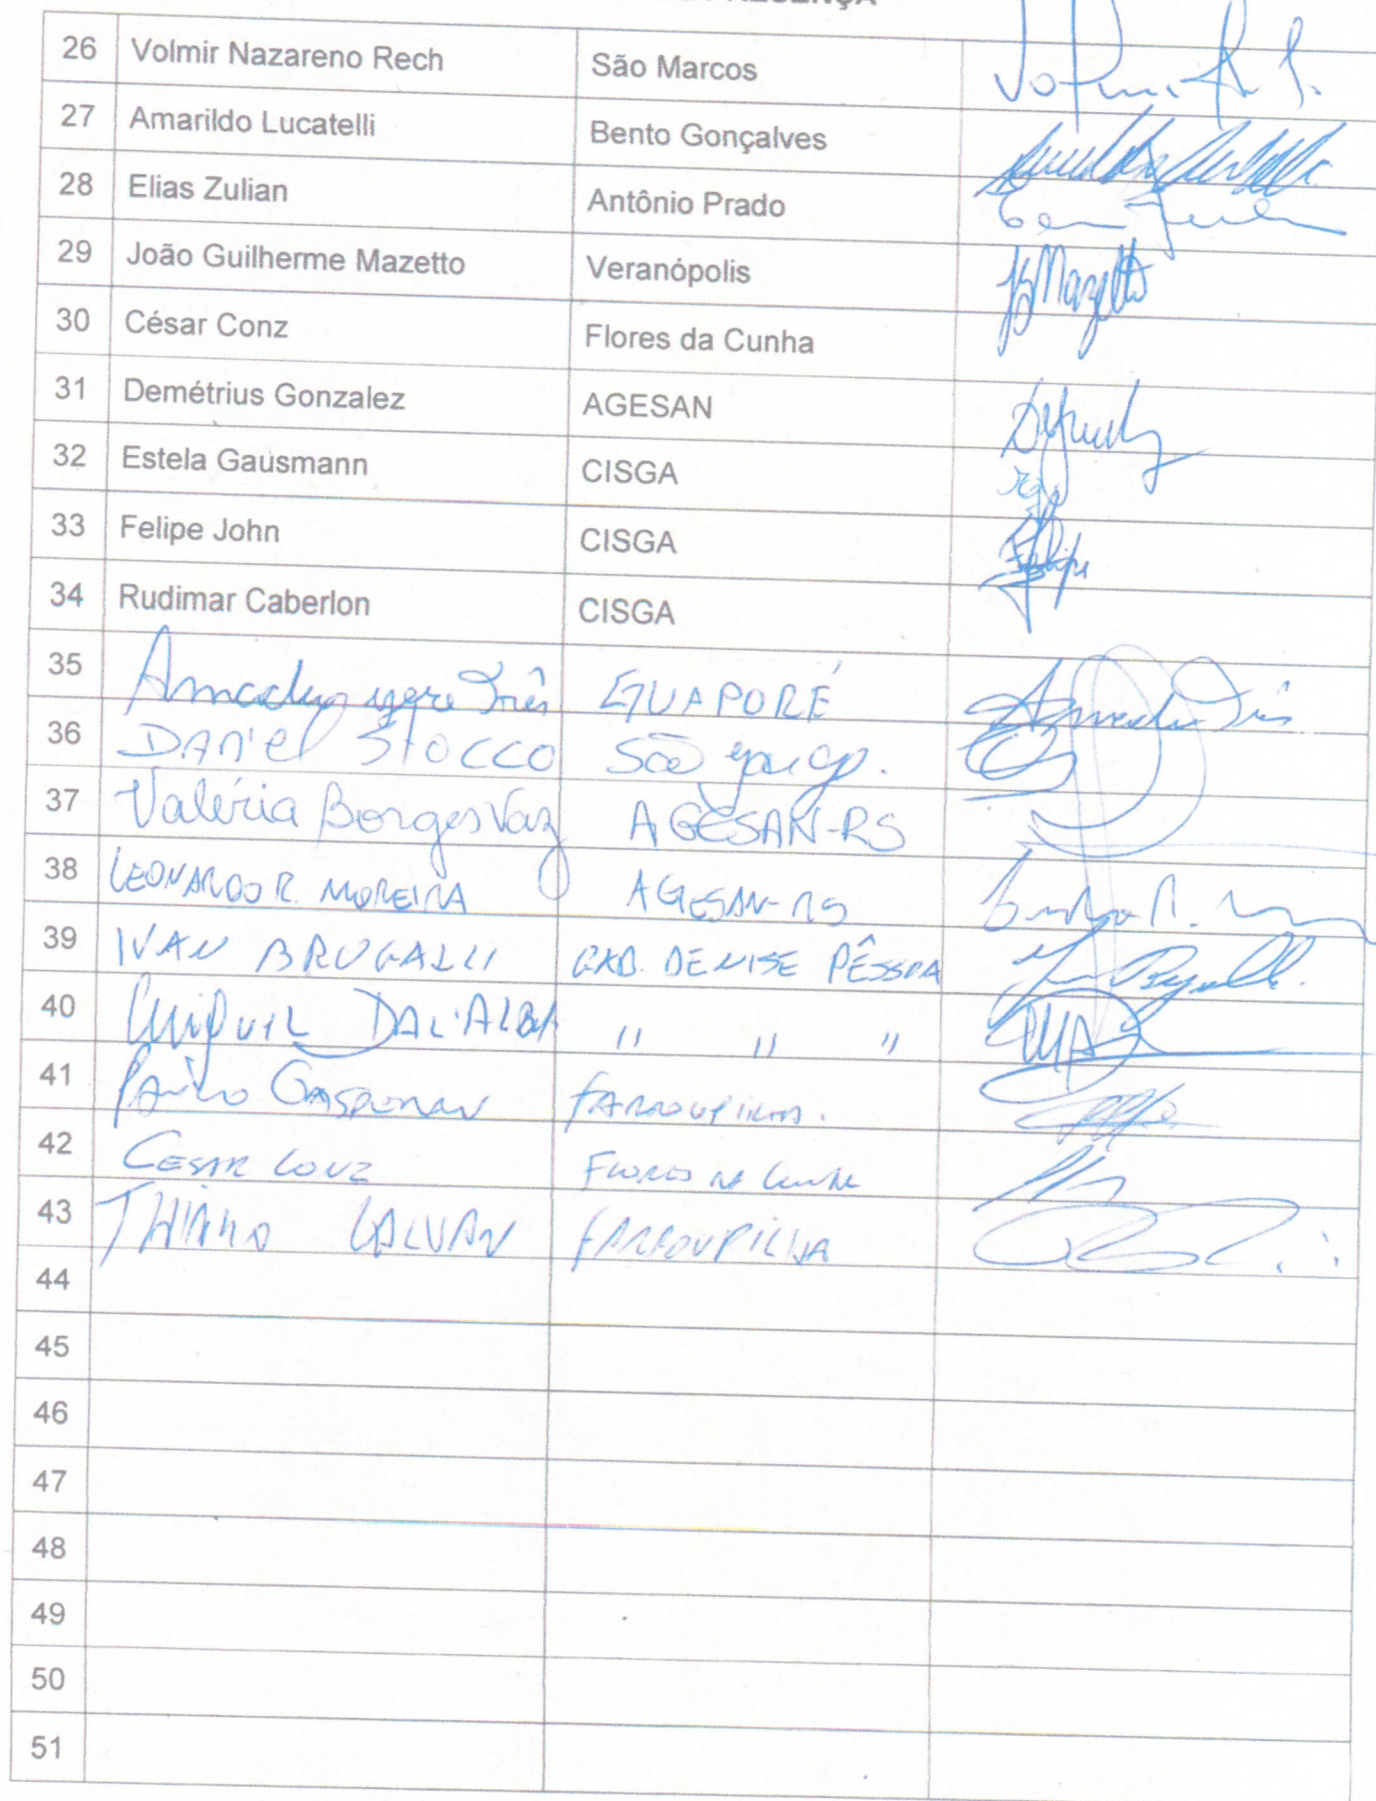 PRESENÇA
26 Volmir Nazareno Rech São Marcos
27 Amarildo Lucatelli Bento Gonçalves
28 Elias Zulian Antônio Prado
29 João Guilherme Mazetto Veranópolis JGMazetto
30 César Conz Flores da Cunha
31 Demétrius Gonzalez AGESAN
32 Estela Gausmann CISGA
33 Felipe John CISGA Felipe
34 Rudimar Caberlon CISGA
35 Três GUAPORÉ
36 DANIEL STOCCO São
37 Valéria Borges Vaz AGESAN-RS
38 LEONARDO R. MOREIRA AGESAN-RS
39 IVAN BRUGALLI GAB. DENISE PÊSSOA
40 DAL'ALBA " " "
41 FARROUPILHA.
42 CESAR CONZ FLORES DA CUNHA
43 THIAGO GALVAN FARROUPILHA
44
45
46
47
48
49
50
51